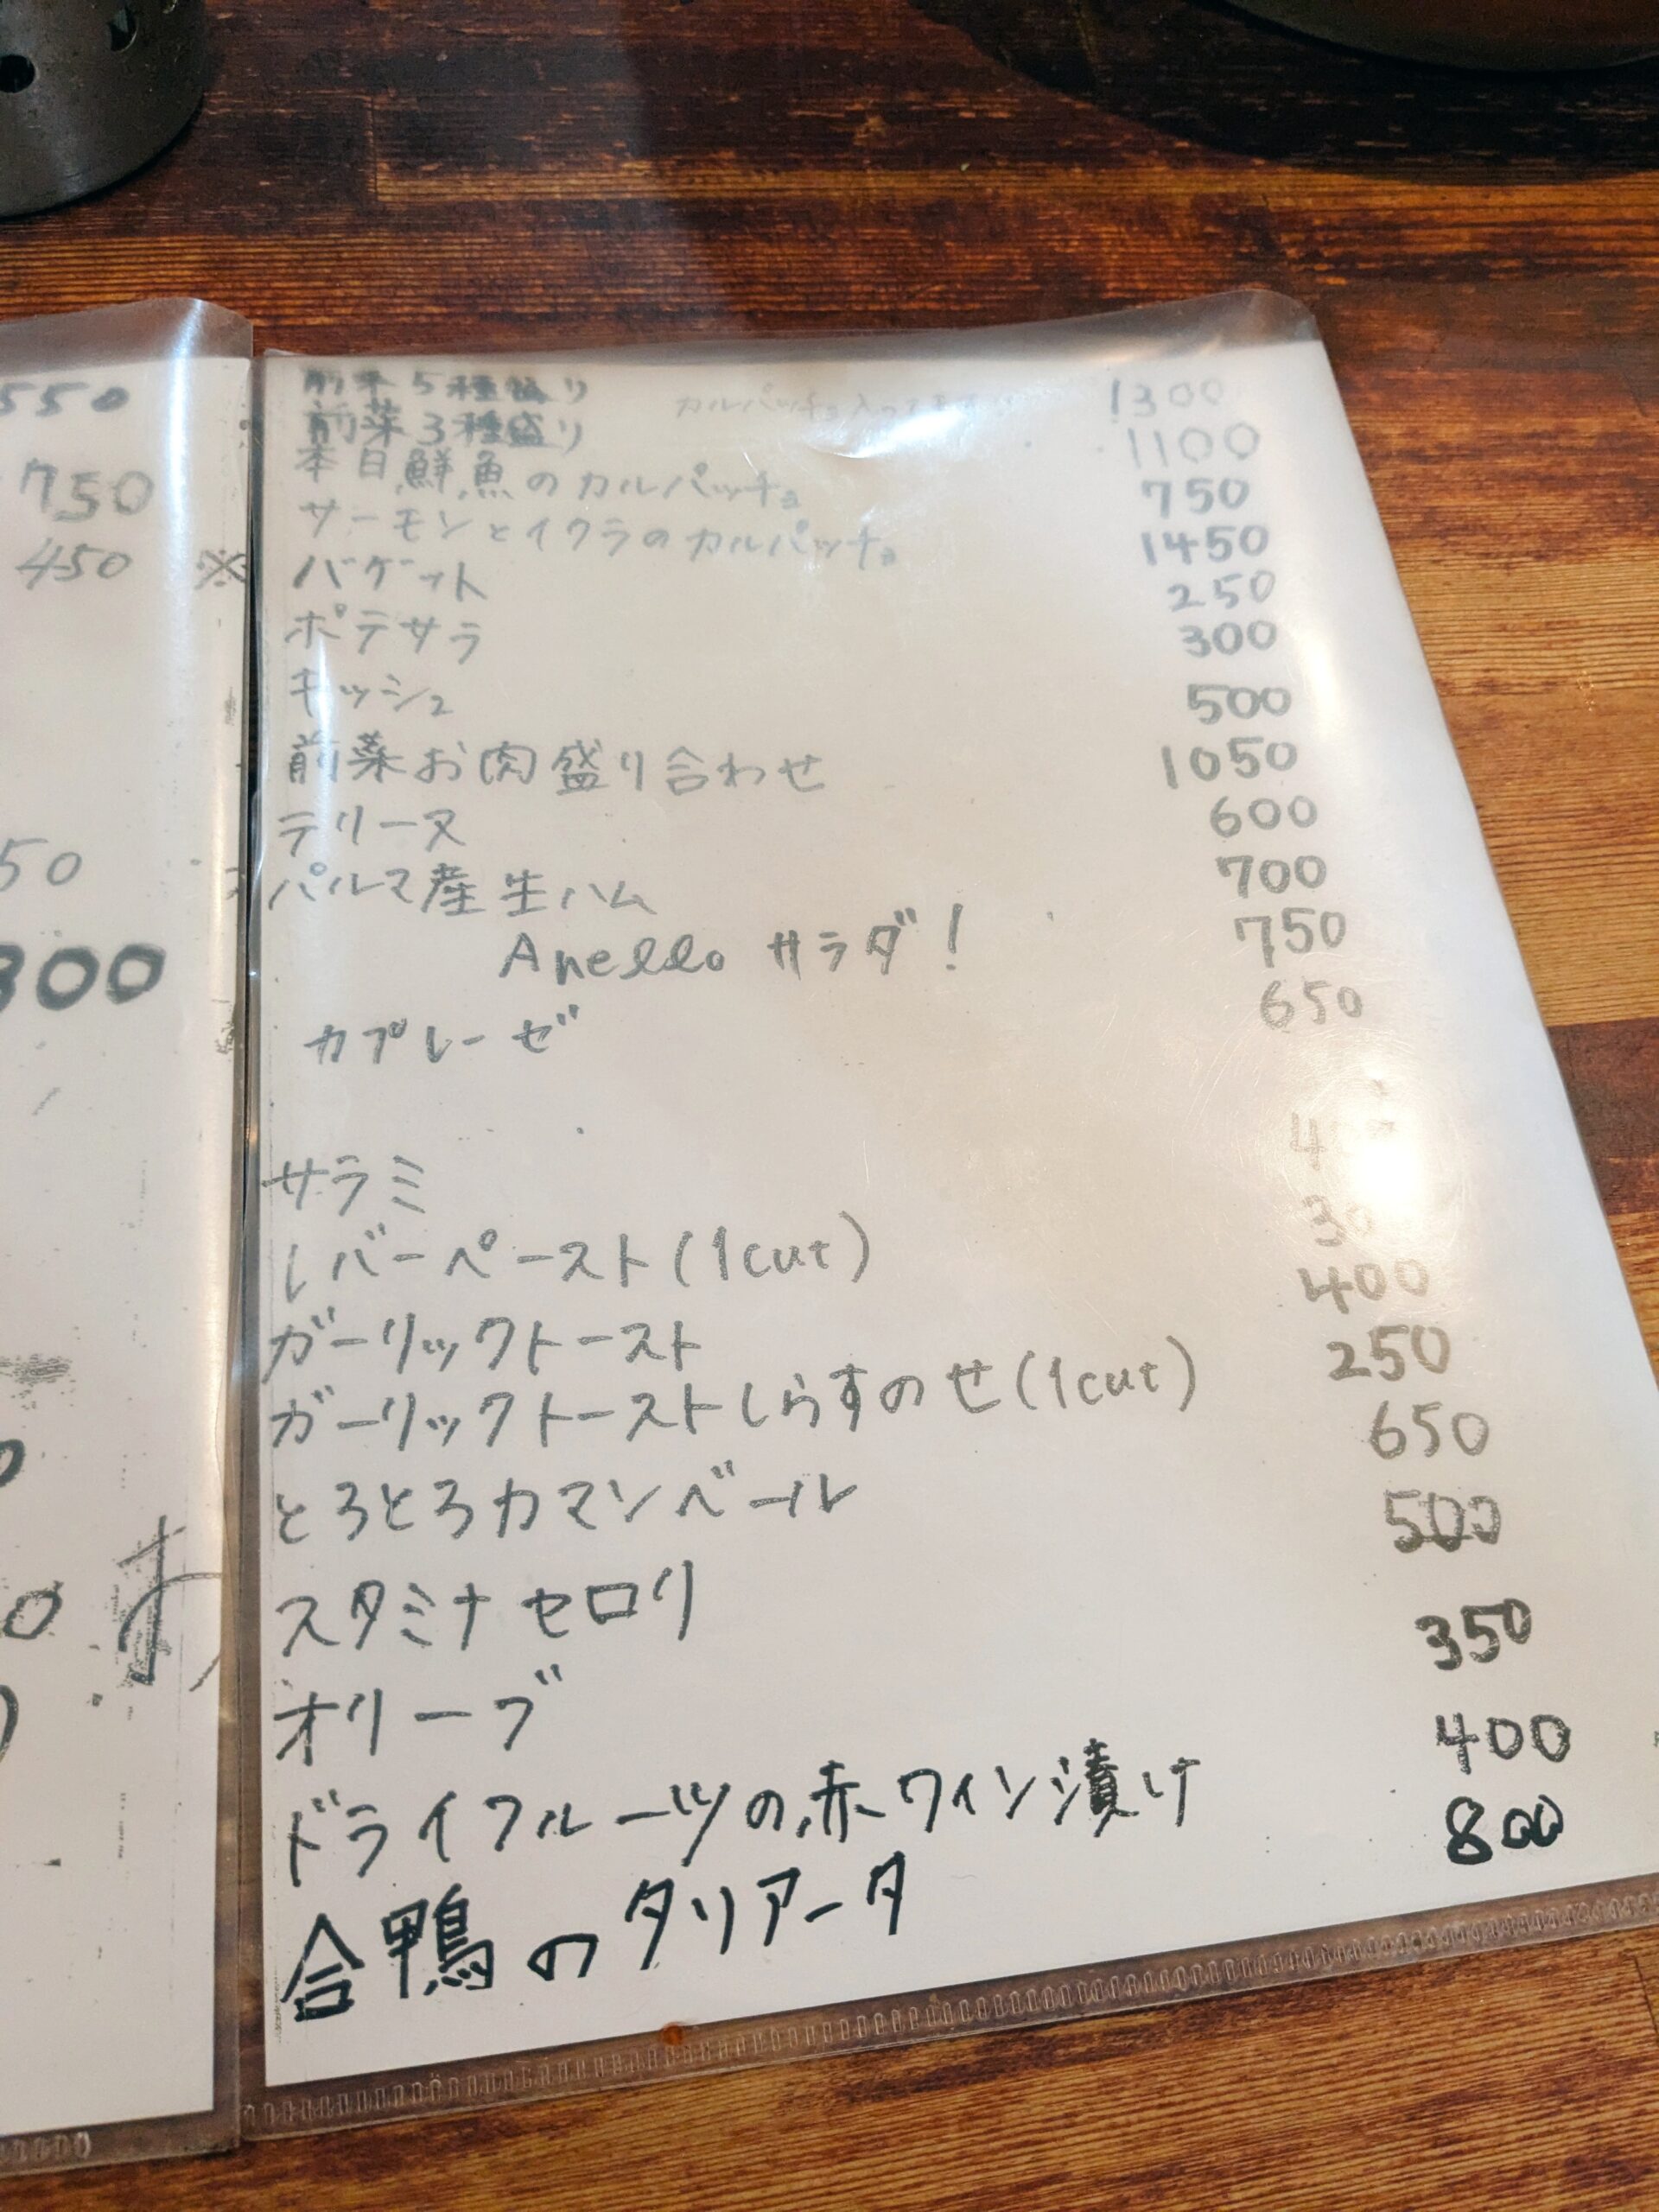 550
750
450 ※
50
300
前菜5種盛り カルパッチョ入って 1300
前菜3種盛り 1100
本日鮮魚のカルパッチョ 750
サーモンとイクラのカルパッチョ 1450
バゲット 250
ポテサラ 300
キッシュ 500
前菜お肉盛り合わせ 1050
テリーヌ 600
パルマ産生ハム 700
Anelloサラダ! 750
カプレーゼ 650
サラミ
レバーペースト(1cut)
ガーリックトースト 400
ガーリックトーストしらすのせ(1cut) 250
とろとろカマンベール 650
スタミナセロリ 500
オリーブ 350
ドライフルーツの赤ワイン漬け 400
合鴨のタリアータ 800